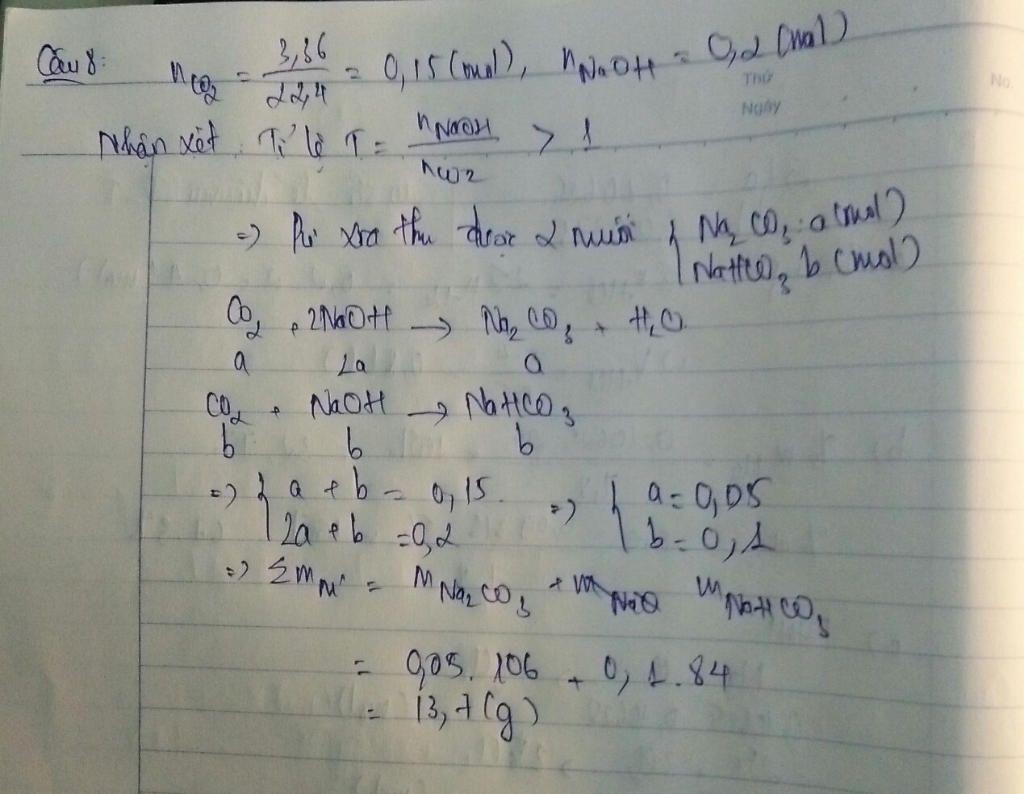 Câu 8: nCO2 = 3,36/22,4 = 0,15 (mol), nNaOH = 0,2 (mol)
Thứ No.
Ngày
Nhận xét: Tỉ lệ T = nNaOH/nCO2 > 1
=> Pư xra thu được 2 muối { Na2CO3: a (mol)
NaHCO3 b (mol)
CO2 + 2NaOH → Na2CO3 + H2O
a 2a a
CO2 + NaOH → NaHCO3
b b b
=> { a + b = 0,15 => { a = 0,05
2a + b = 0,2 b = 0,1
=> Σm = mNa2CO3 + mNaHCO3
= 0,05. 106 + 0,1.84
= 13,7 (g)